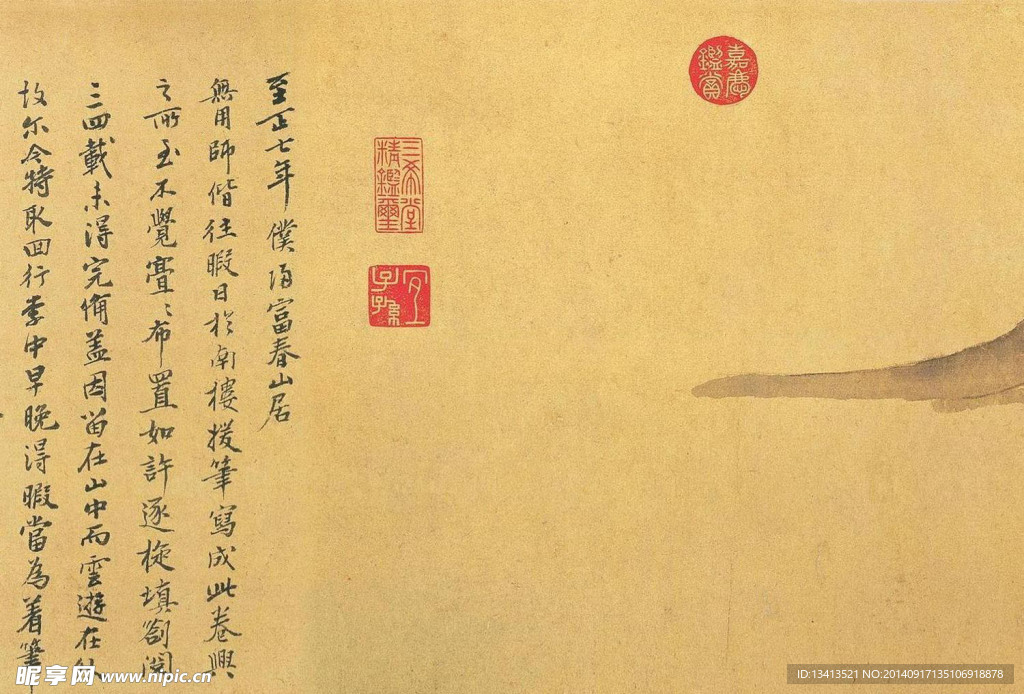 嘉慶鑑賞
三希堂精鑑璽
宜子孫
至正七年僕歸富春山居
無用師偕往暇日於南樓援筆寫成此卷興
之所至不覺亹〻布置如許逐旋填劄閱
三四載未得完備蓋因留在山中而雲遊在外
故爾今特取回行李中早晚得暇當為着筆
昵享网 www.nipic.cn
ID:13413521 NO:20140917135106918878